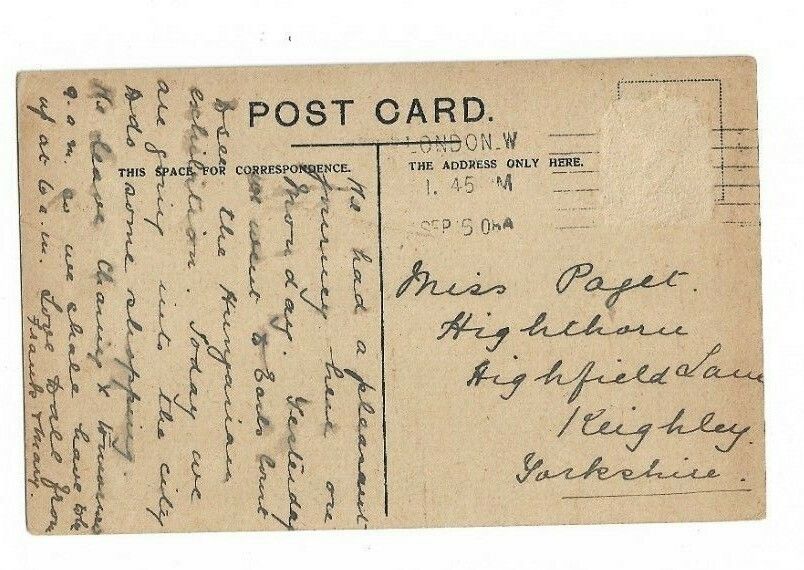 POST CARD.
THIS SPACE FOR CORRESPONDENCE.
THE ADDRESS ONLY HERE.
LONDON. W
1. 45 M
SEP 5
We had a pleasant
journey here on
Monday. Yesterday
we went to Earls Court
& saw the Hungarian
exhibition. Today we
are going into the city
& do some shopping.
We leave Charing X tomorrow
9. a.m. so we shall have to be
up at 6 a.m. Love to all from
Frank & Mary.
Miss Paget.
Highthorn
Highfield Lane
Keighley.
Yorkshire.